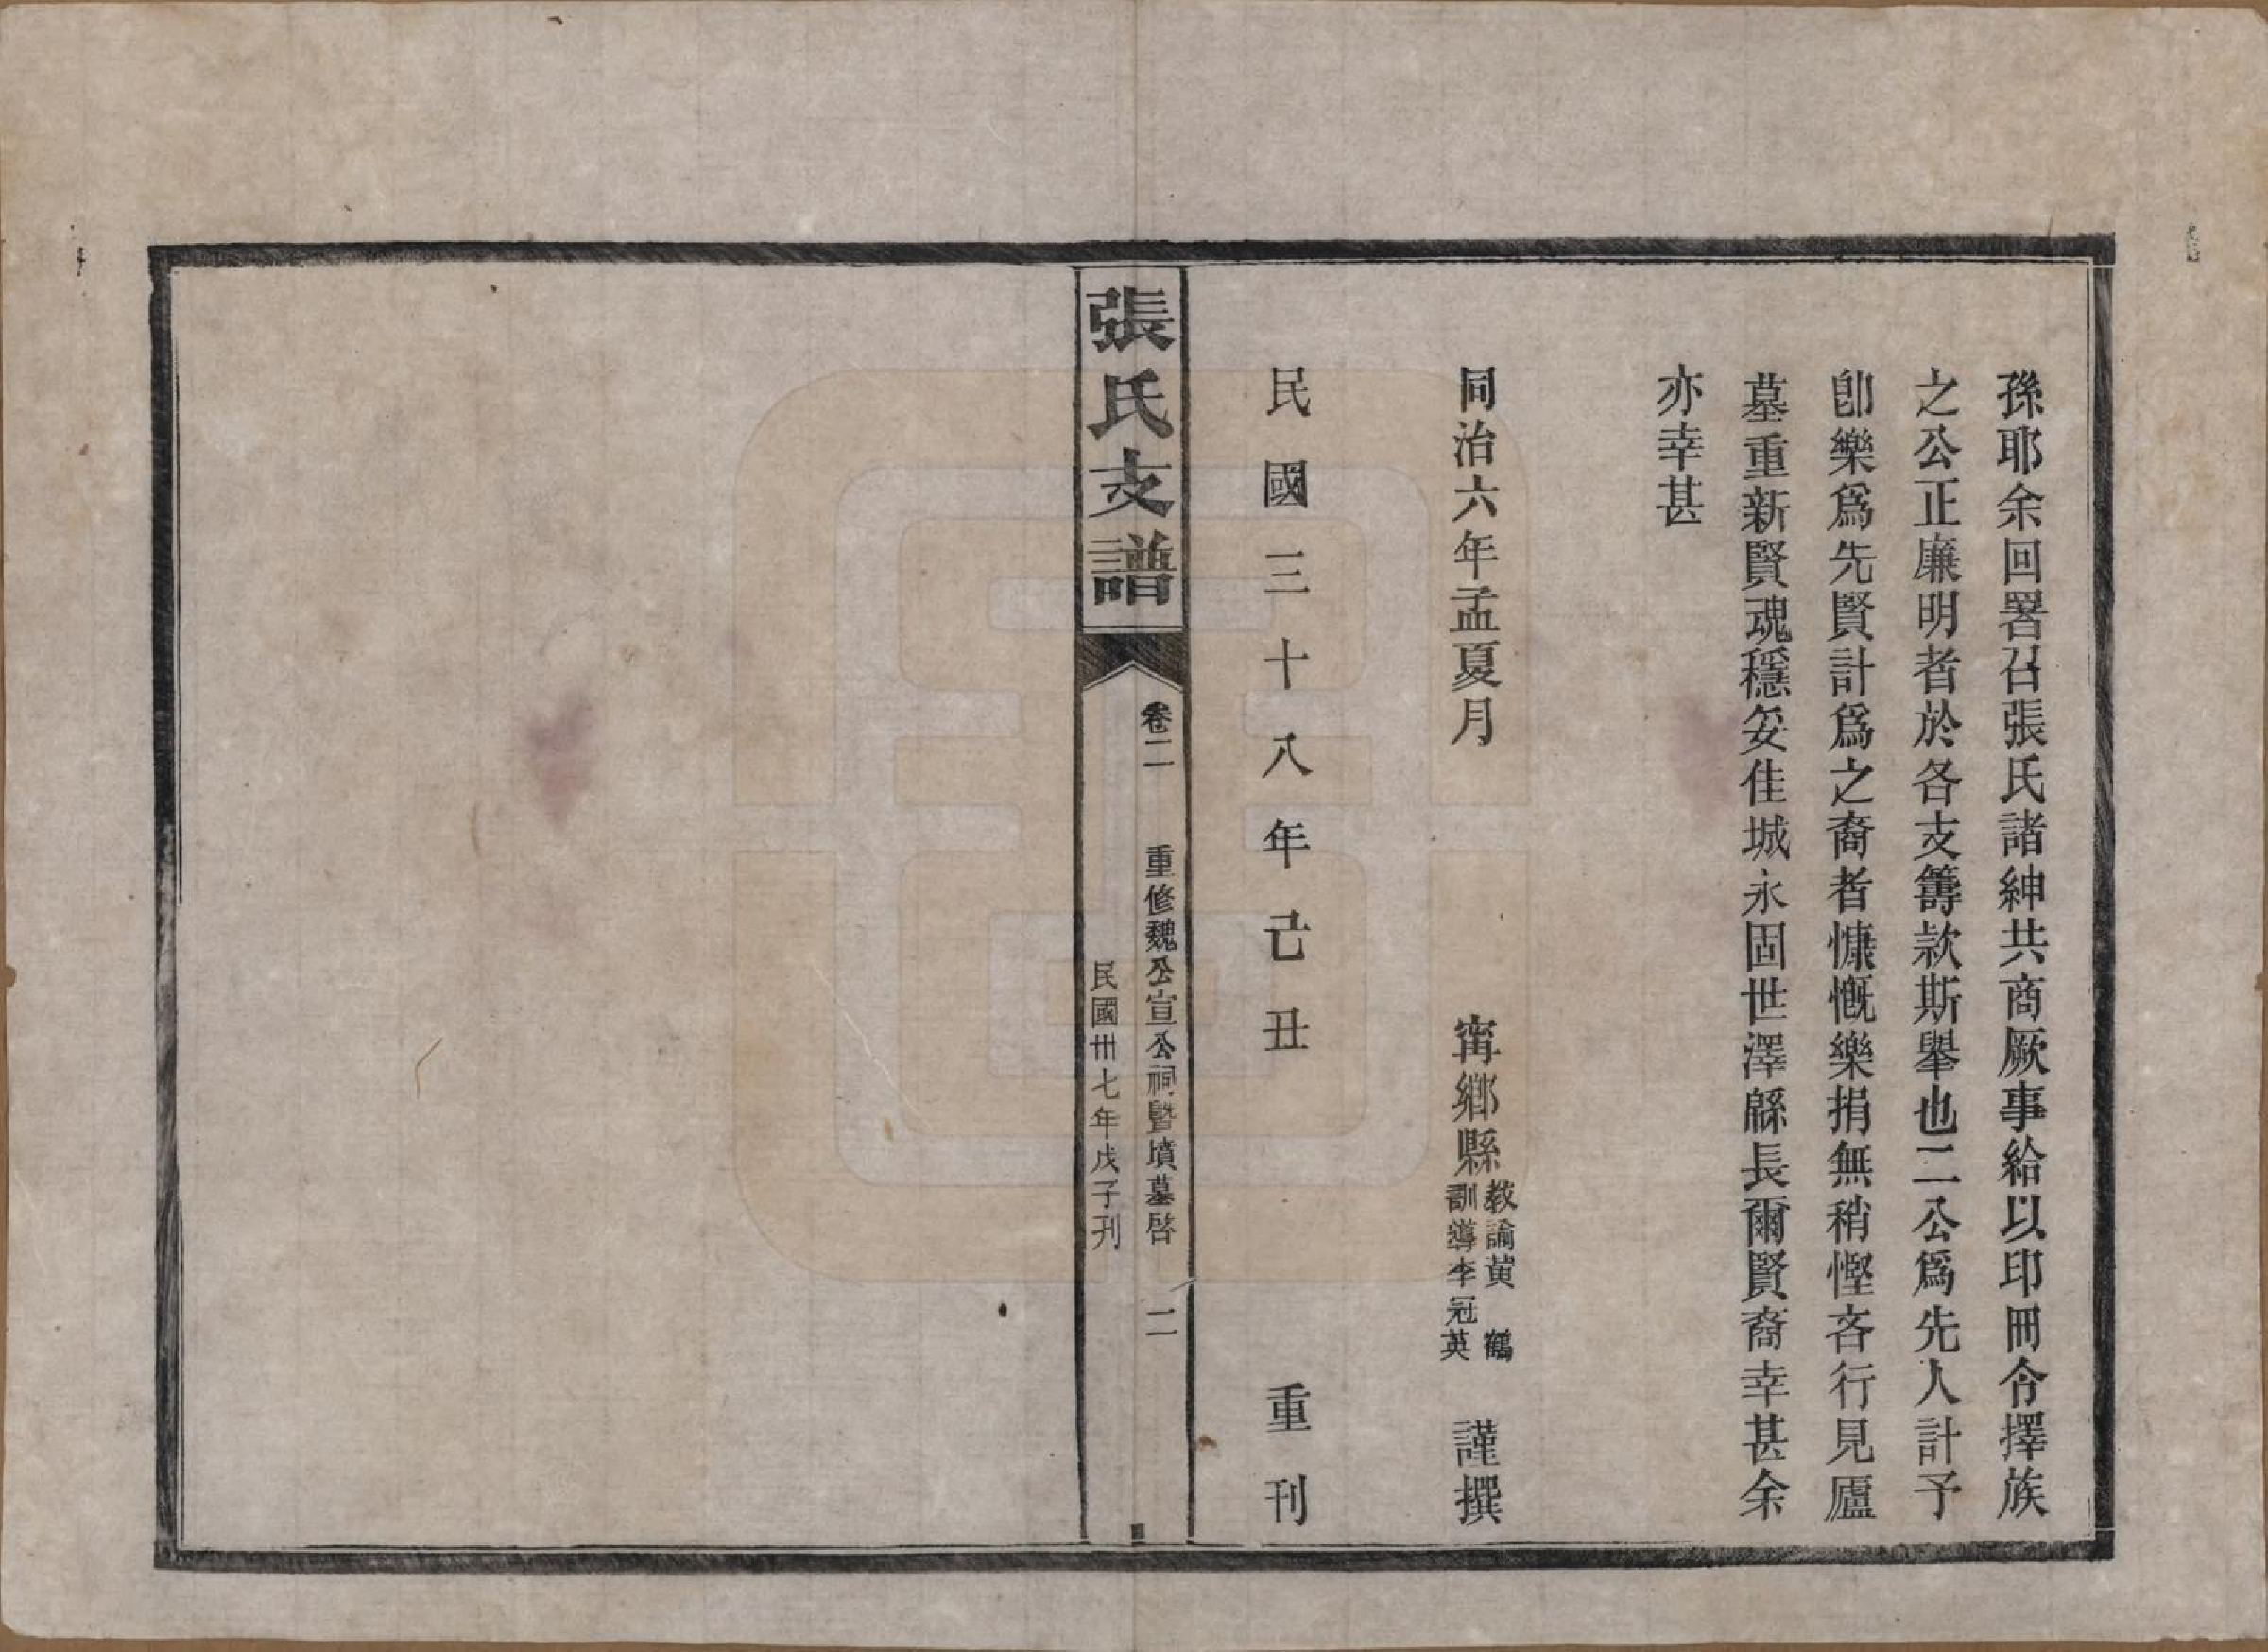 孫耶余回署召張氏諸紳共商厥事給以印冊令擇族
之公正廉明者於各支籌款斯舉也二公爲先人計予
卽樂爲先賢計爲之裔者慷慨樂捐無稍慳吝行見廬
墓重新賢魂穩妥佳城永固世澤緜長爾賢裔幸甚余
亦幸甚
同治六年孟夏月 甯鄉縣教諭黄鶴訓導李冠英 謹撰
民國三十八年己丑 重刊
張氏支譜
卷二 重修魏公宣公祠暨墳墓啓 二
民國卌七年戊子刊